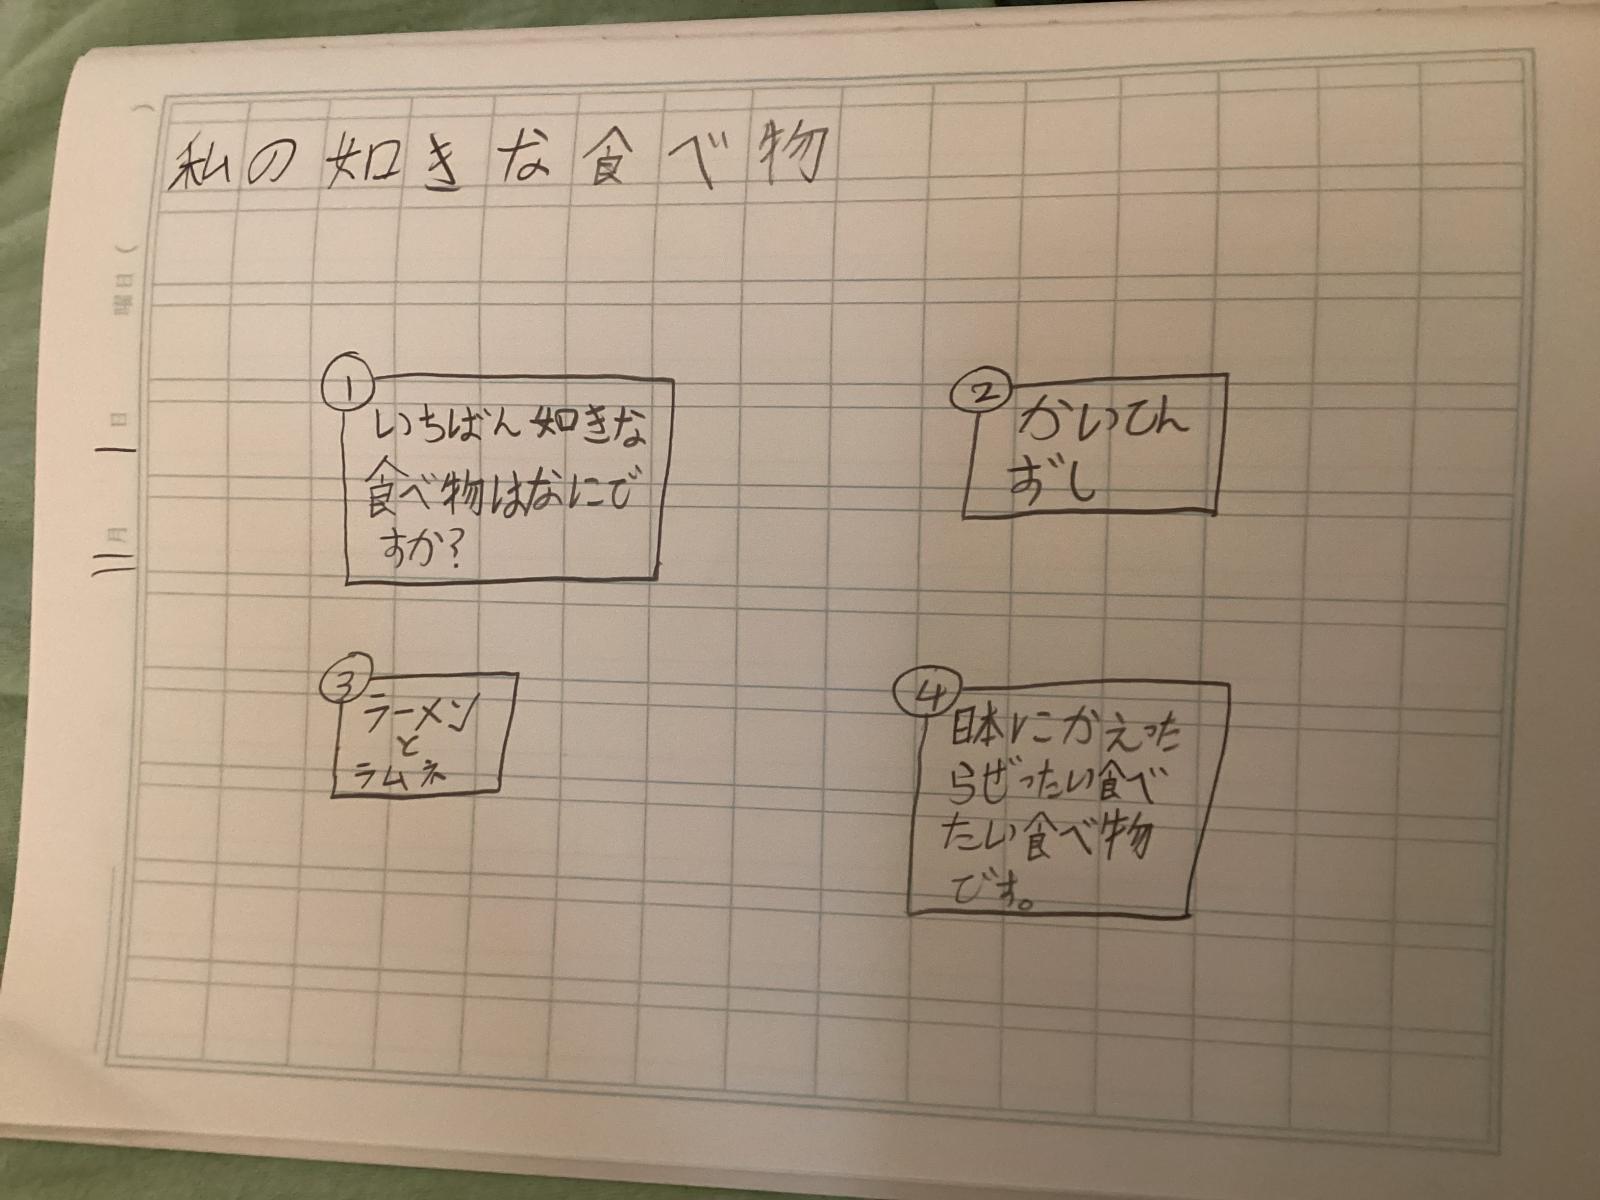 私の如きな食べ物
①
いちばん如きな
食べ物はなにで
すか?
②
かいてん
ずし
③
ラーメン
と
ラムネ
④
日本にかえった
らぜったい食べ
たい食べ物
です。
二月 一日 ( 曜日)